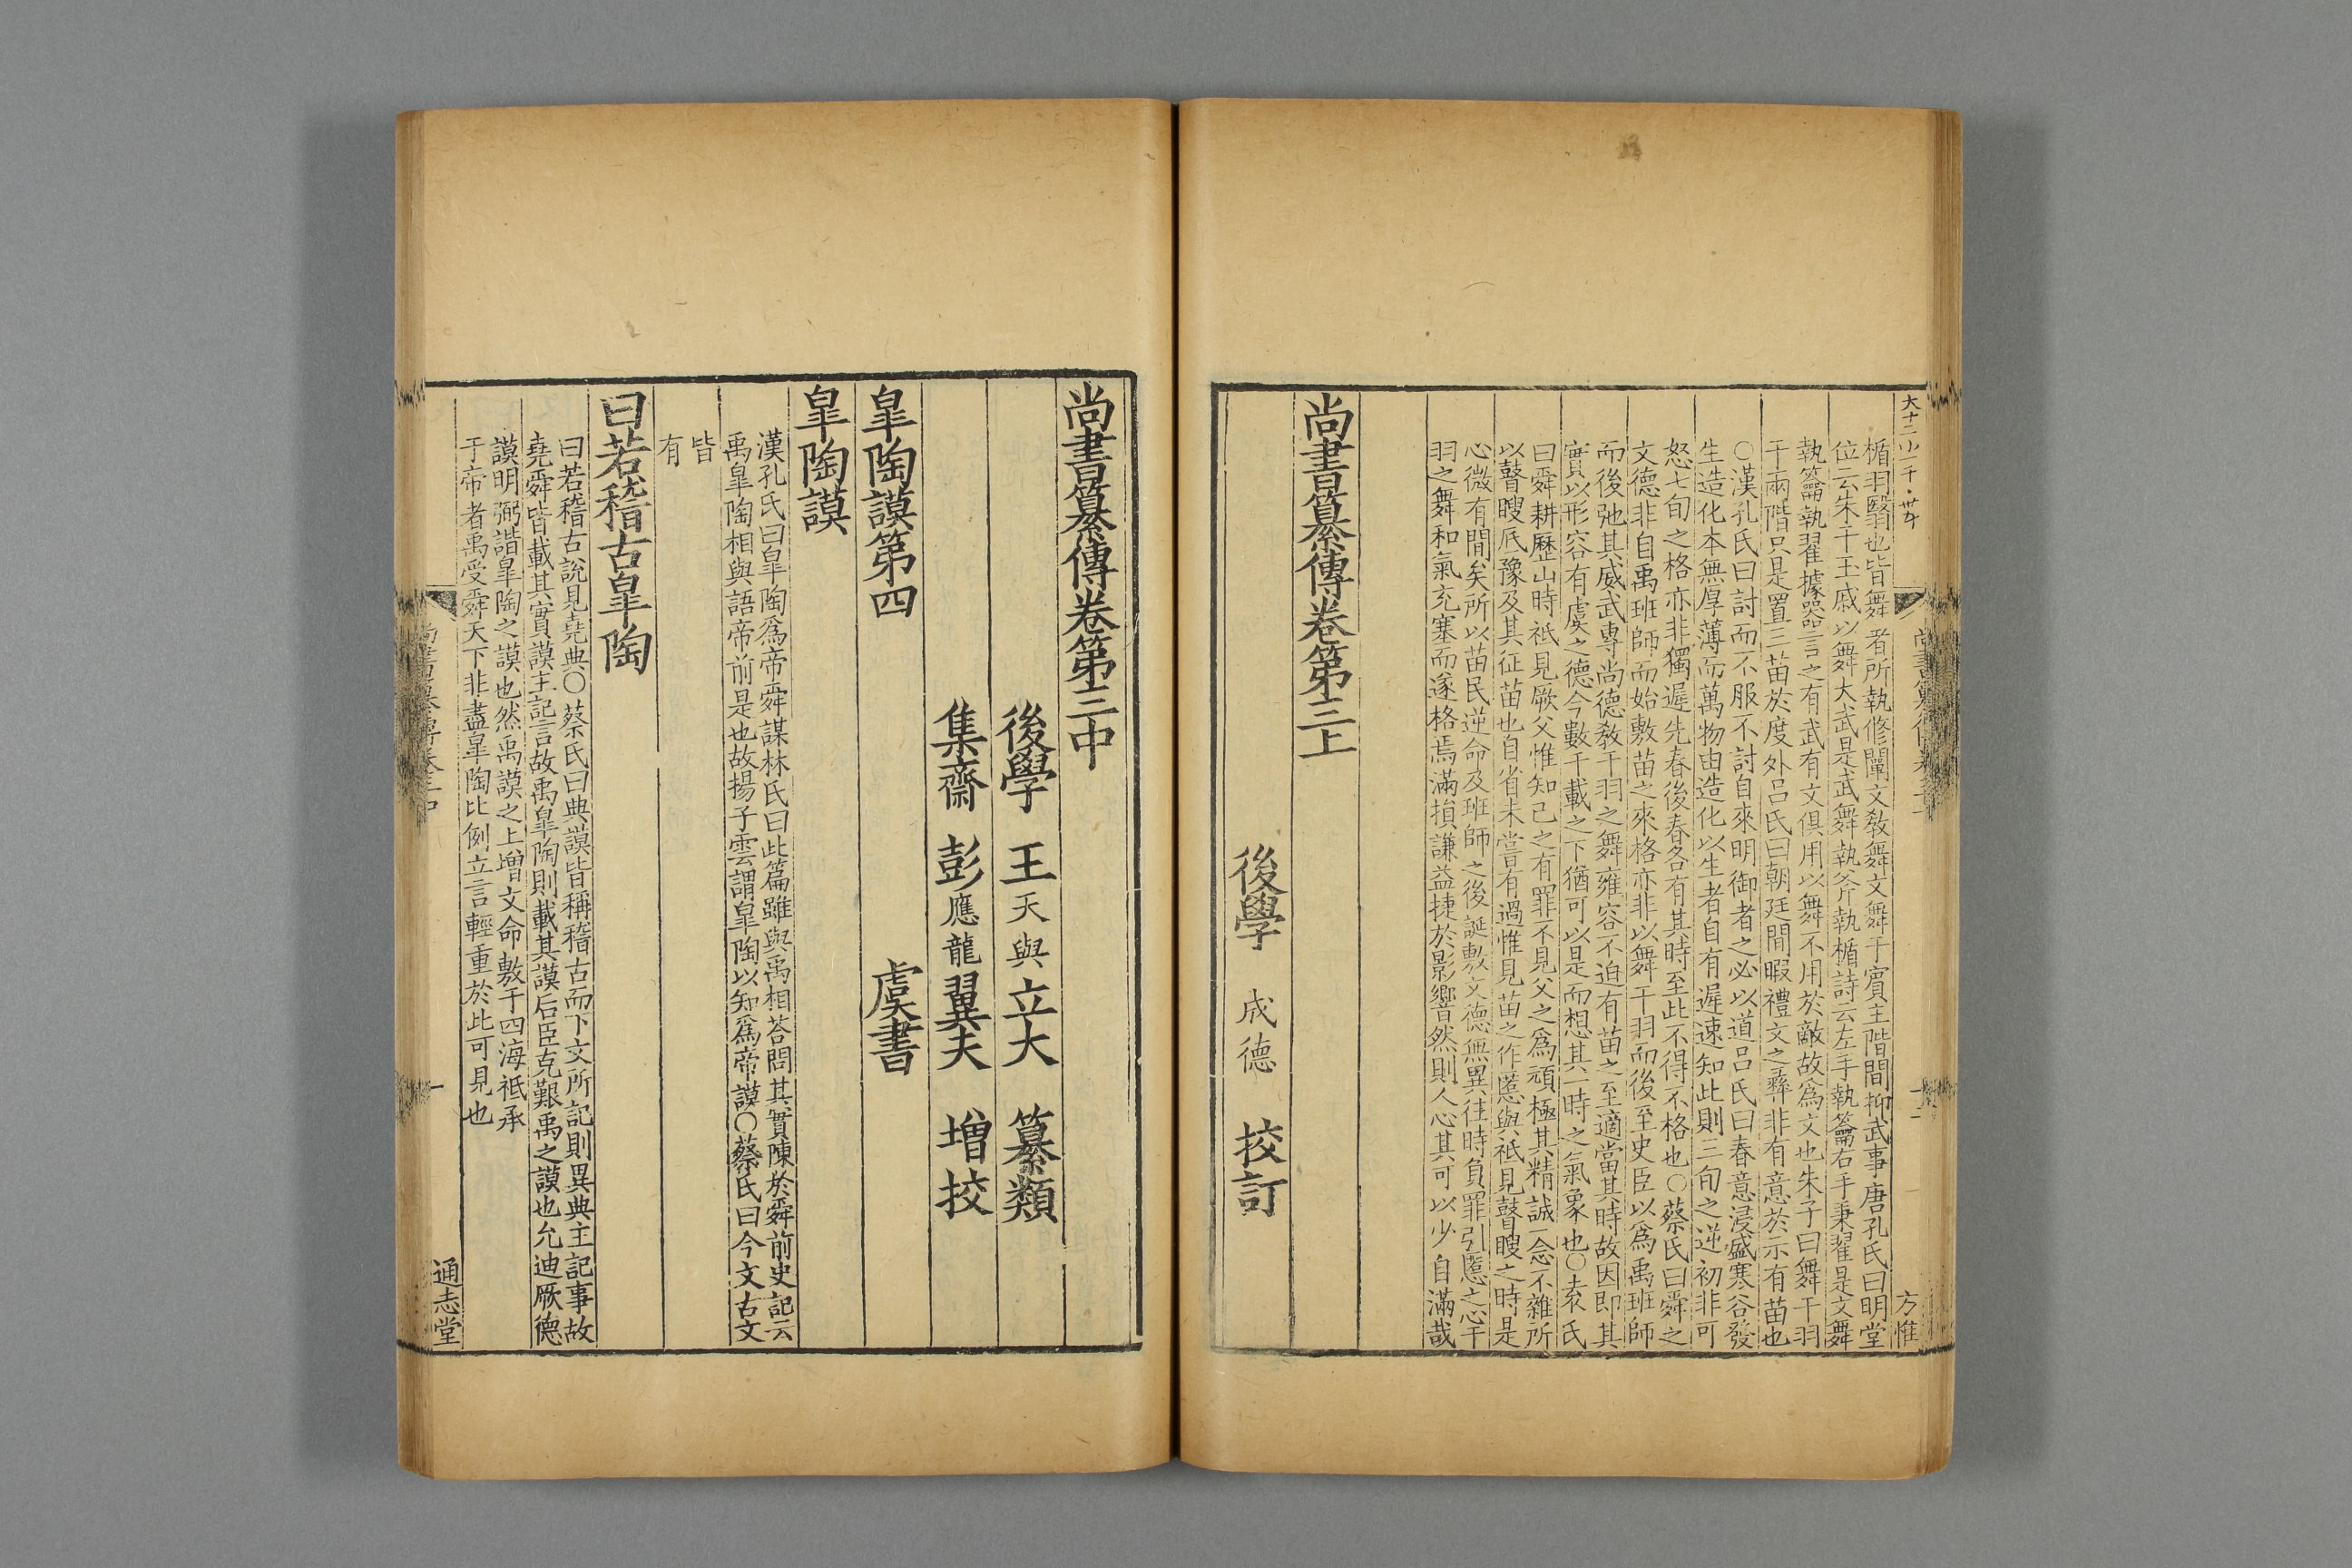 大十二小一千·卅
楯羽翳也皆舞者所執修闡文敎舞文舞于賓主階間抑武事唐孔氏曰明堂
位云朱干玉戚以舞大武是武舞執斧執楯詩云左手執籥右手秉翟是文舞
執籥執翟據器言之有武有文俱用以舞不用於敵故爲文也朱子曰舞干羽
于兩階只是置三苗於度外呂氏曰朝廷間暇禮文之彞非有意於示有苗也
○漢孔氏曰討而不服不討自來明御者之必以道呂氏曰春意浸盛寒谷發
生造化本無厚薄而萬物由造化以生者自有遲速知此則三旬之逆初非可
怒七旬之格亦非獨遲先春後春各有其時至此不得不格也○蔡氏曰舜之
文德非自禹班師而始敷苗之來格亦非以舞干羽而後至史臣以爲禹班師
而後弛其威武專尚德敎干羽之舞雍容不迫有苗之至適當其時故因即其
實以形容有虞之德今數千載之下猶可以是而想其一時之氣象也○袁氏
曰舜耕歷山時祗見厥父惟知己之有罪不見父之爲頑極其精誠一念不雜所
以瞽瞍底豫及其征苗也自省未嘗有過惟見苗之作慝與祗見瞽瞍之時是
心微有間矣所以苗民逆命及班師之後誕敷文德無異往時負罪引慝之心干
羽之舞和氣充塞而遂格焉滿損謙益捷於影響然則人心其可以少自滿哉
尚書纂傳卷第三上
後學 成德 挍訂
方惟
尚書纂傳卷第三中
後學 王天與立大 纂類
集齋 彭應龍翼夫 增挍
皐陶謨第四 虞書
皐陶謨
漢孔氏曰皐陶爲帝舜謀林氏曰此篇雖與禹相荅問其實陳於舜前史記云
禹皐陶相與語帝前是也故揚子雲謂皐陶以知爲帝謨○蔡氏曰今文古文
皆
有
曰若稽古皐陶
曰若稽古說見堯典○蔡氏曰典謨皆稱稽古而下文所記則異典主記事故
堯舜皆載其實謨主記言故禹皐陶則載其謨后臣克艱禹之謨也允迪厥德
謨明弼諧皐陶之謨也然禹謨之上增文命敷于四海祗承
于帝者禹受舜天下非盡皐陶比例立言輕重於此可見也
通志堂